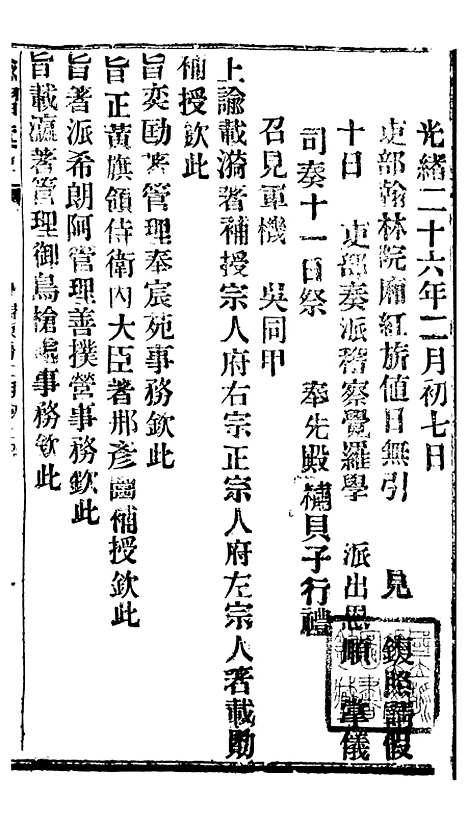 光緒二十六年二月初七日
吏部翰林院廂紅旂値日無引　見　鍑照請假
十日　吏部奏派稽察覺羅學　派出恩順　掌儀
司奏十一日祭　奉先殿　補貝子行禮
召見軍機　吳同甲
上諭載漪著補授宗人府右宗正宗人府左宗人著載勛
補授欽此
旨奕劻著管理奉宸苑事務欽此
旨正黃旗領侍衛內大臣著那彥圖補授欽此
旨著派希朗阿管理善撲營事務欽此
旨載瀛著管理御鳥槍處事務欽此